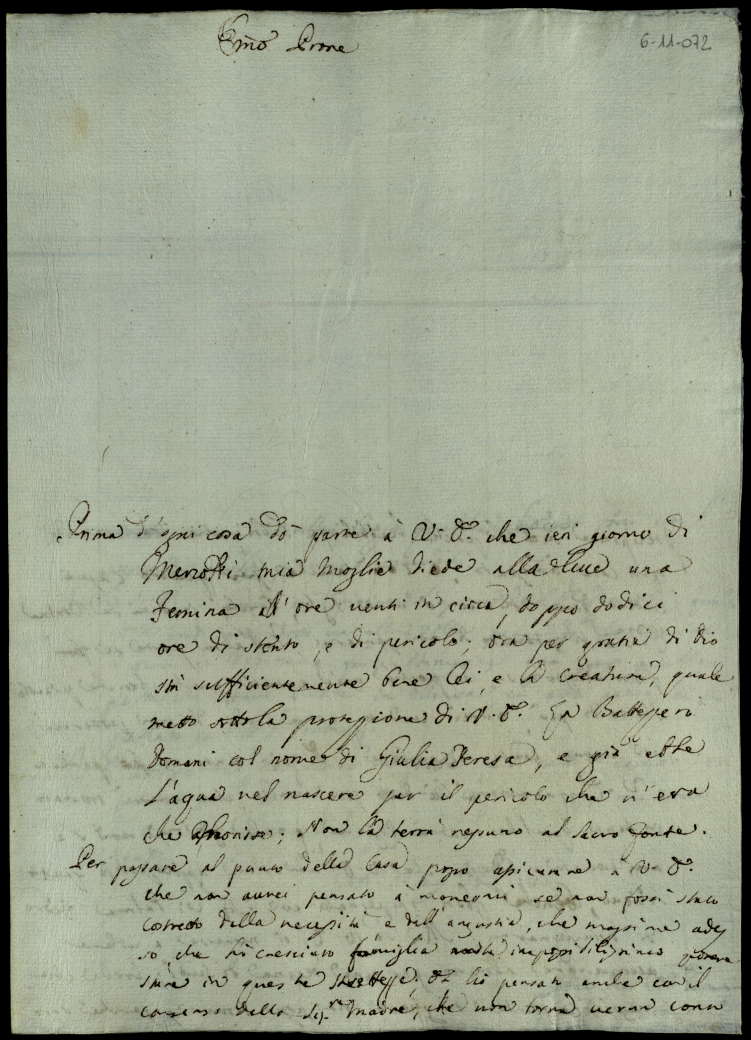 6-11-072
Emo Prone
Prima d'ogni cosa dò parte à V. E. che ieri giorno di
Mercordi mia Moglie diede alla luce una
Femina all'ore venti in circa, doppo dodici
ore di stento, e di pericolo; ora per gratia di Dio
stà sufficientemente bene lei, e la creatura, quale
metto sotto la protezzione di V. E. La Battezzerò
Domani col nome di Giulia Teresa, e già ebbe
L'aqua nel nascere per il pericolo che v'era
che morisse; Non la terrà nessuno al sacro Fonte.
Per passare al punto della Casa posso assicurare à V. E.
che non avrei pensato à se non fossi stato
costretto dalla necessità e dall'angustia, che massime ades
sò che hò cresciuto famiglia potere
stare in queste strettezze; hò pensato anche con il
consenso della Sig.ra Madre, che non torna verun conto